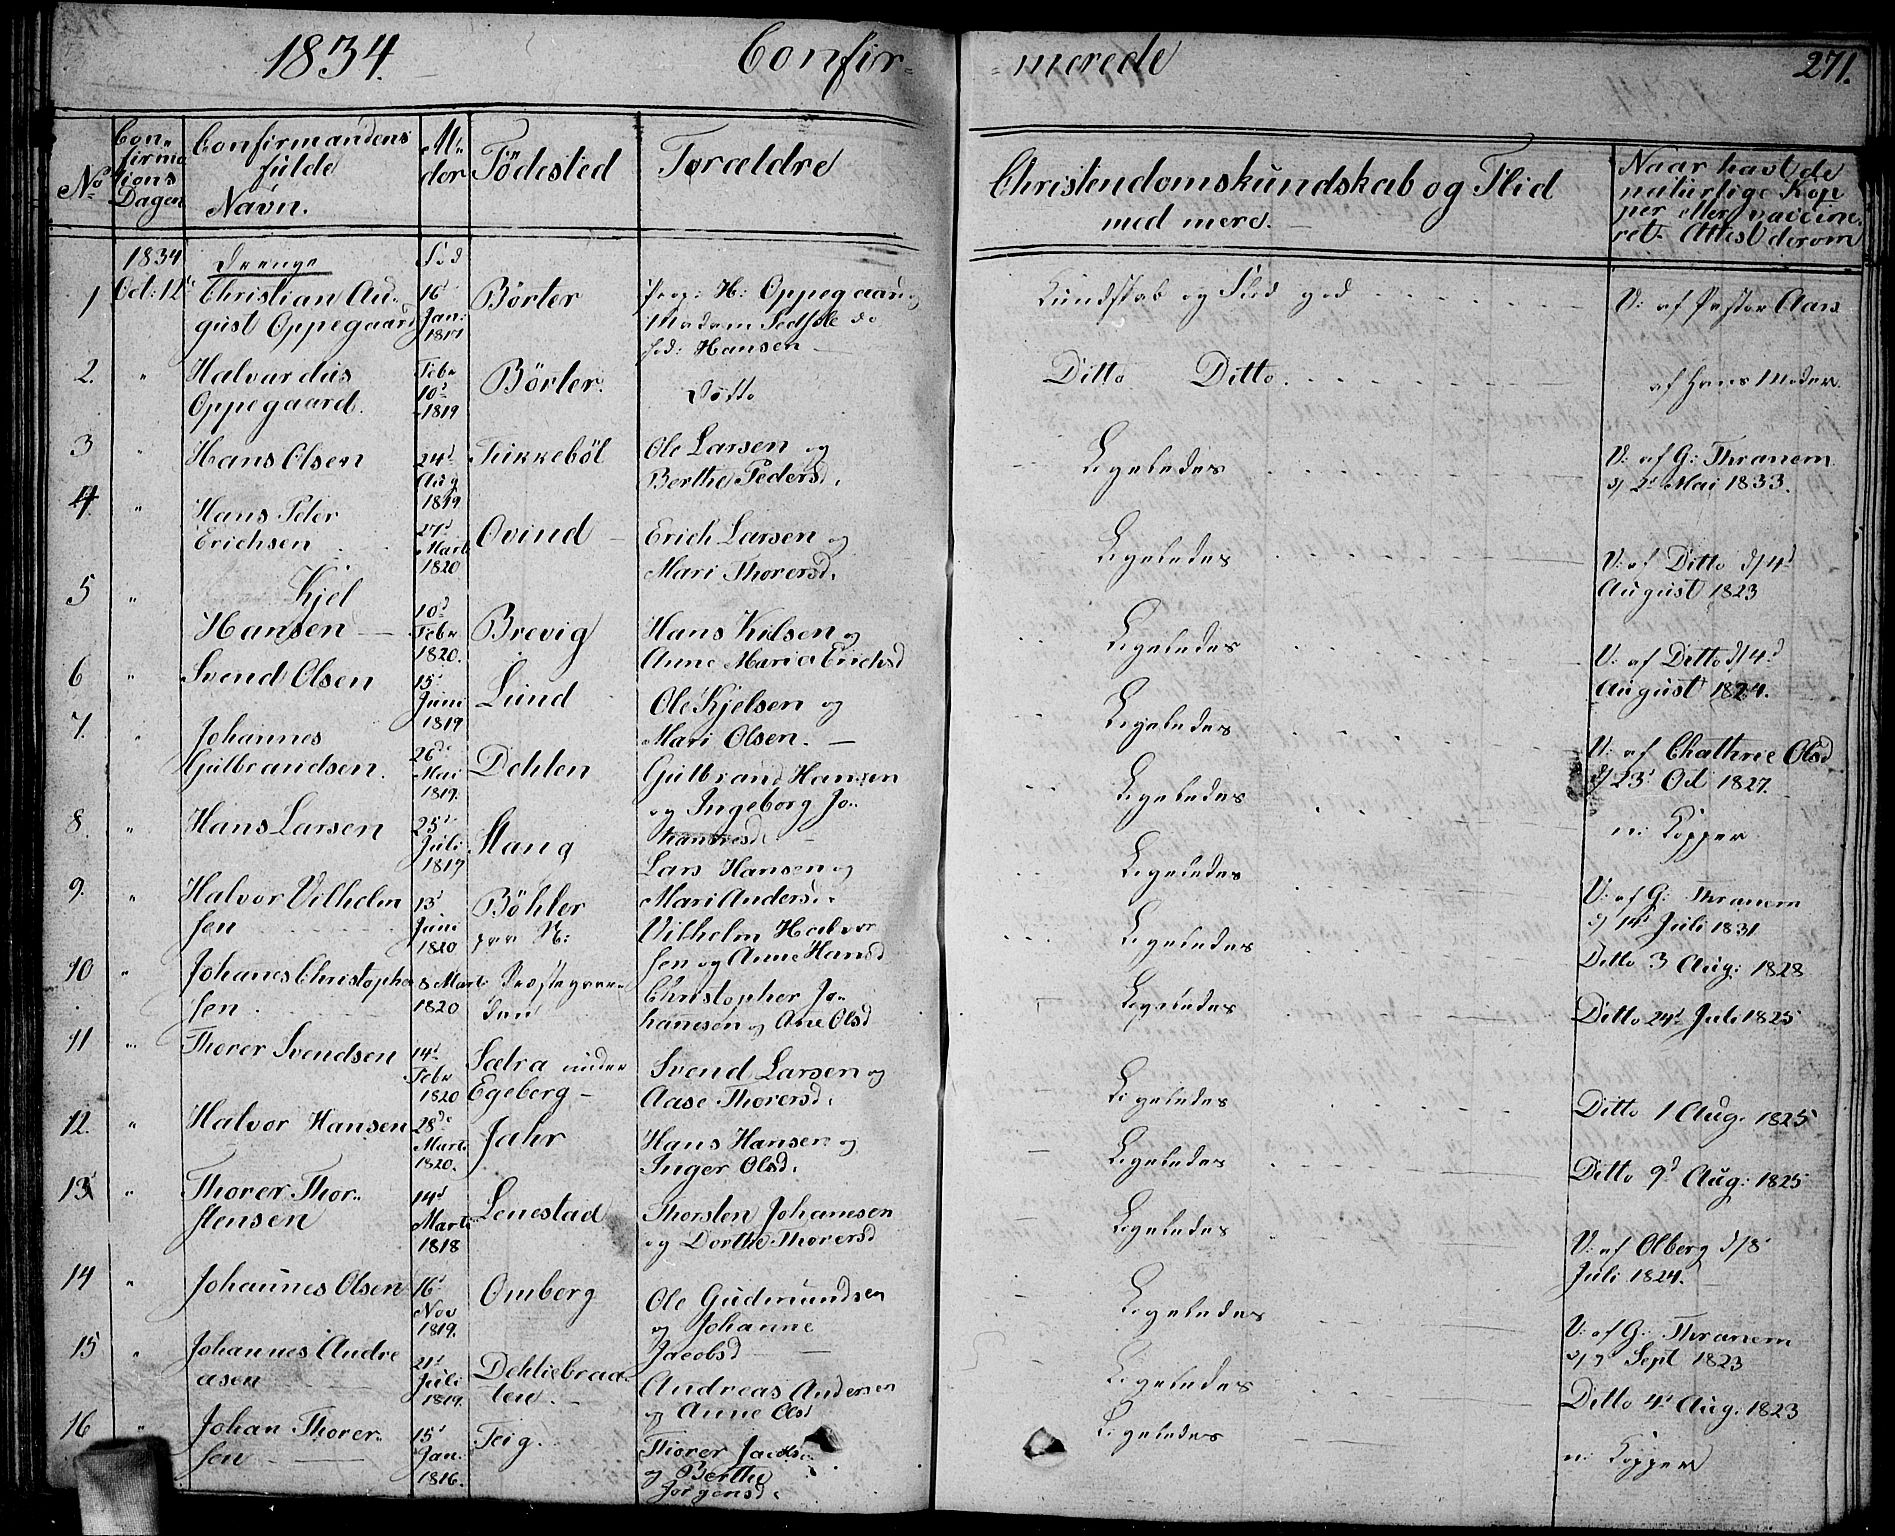 1834. Confir- -merede 271.
No
Con-
firma
tions
Dagen
Confirmandens
fulde
Navn.
Al-
der
Födested
Forældre
Christendomskundskab og Flid
med mere.
Naar havt de
naturlige Kop
per eller vaccine
ret. Attest derom
1834 Drenge Föd
1 Oct: 12' Christian Au-
gust Oppegaard
16'
Jan:
1817
Börter
Prop: H: Oppegaard og
Madam
föd: Hansen
Kundskab og Flid god
V: af Pastor Aars
2. " Halvardus
Oppegaard.
Febr
10d
1819
Börter.
Ditto
Ditto Ditto.
af Hans Moder
3 Hans Olsen
24d
Aug
1819
Kikkeböl
Ole Larsen og
Berthe Pedersd.
Ligeledes
V: af G: Thranem
d/ 2' Mai 1833.
4. " Hans Peter
Erichsen
27d
Mart
1820
Ovind
Erich Larsen og
Mari Thorersd.
Ligeledes
V: af Ditto d/4d
August 1823
5 " Kjel
Hansen
10d
Febr
1820.
Brevig
Hans Kilsen og
Anne Maria Erichsd
Ligeledes
V: af Ditto d/4d
August 1824.
6 " Svend Olsen
15'
Juni
1819
Lund
Ole Kjelsen og
Mari Olsen.
Ligeledes
V: af Chathrie Olsd
d/23' Oct 1827.
7. " Johannes
Gulbrandsen.
26de
Mai
1819.
Dehlen
Gulbrand Hansen
og Ingeborg Jo-
hanesd.
Ligeledes
n: Kopper
8. " Hans Larsen
25d
Juli
1819
Stang
Lars Hansen og
Mari Andersd.
Ligeledes
V: af G: Thranem
d/ 14d Juli 1831
9. " Halvor Vilhelm
sen
13'
Juni
1820
Böhler
paa N:
Vilhelm Halvor
sen og Anne Hansd
Ligeledes
Ditto 3 Aug: 1828
10 " Johanes Christopher
sen
8 Mart
1820
Præstegaar-
den
Christopher Jo-
hanesen og Ane Olsd
Ligeledes
Ditto 24d Juli 1825
11 " Thorer Svendsen
14d
Febr
1820
Sætra under
Egeberg
Svend Larsen og
Aase Thorersd.
Ligeledes
Ditto 1 Aug. 1825
12. " Halvor Hansen
28de
Mart
1820.
Jahr
Hans Hansen og
Inger Olsd.
Ligeledes
Ditto 9d Aug: 1825
13 " Thorer Thor-
stensen
14d
Mart
1818
Lenestad
Thorsten Johanesen
og Dorthe Thorersd
Ligeledes
V: af Olberg d/8'
Juli 1824.
14 " Johannes Olsen
16'
Nov
1819.
Omberg
Ole Gudmundsen
og Johanne
Jacobsd
Ligeledes
V: af G: Thranem
d/ 7 Sept 1823
15 " Johannes Andre
asen
21d
Juli
1819.
Dehliebraa-
ten.
Andreas Andersen
og Anne Olsd
Ligeledes
Ditto 4d Aug: 1823
16 " Johan Thorer-
sen
15d
Jan.
1816.
Teig.
Thorer Jacobs.
og Berthe
Jörgensd.
Ligeledes
n: Kopper